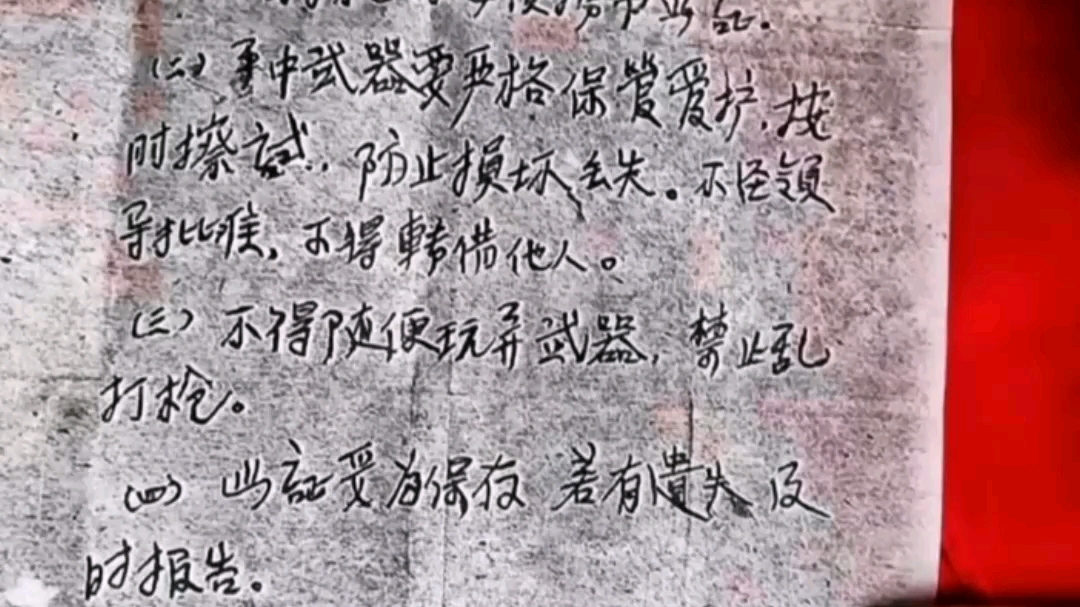 此证。
(二)手中武器要严格保管爱护,按
时擦试,防止损坏、丢失。不经领
导批准,不得转借他人。
(三)不得随便玩弄武器,禁止乱
打枪。
(四)此証要妥为保存 若有遺失 及
时报告。